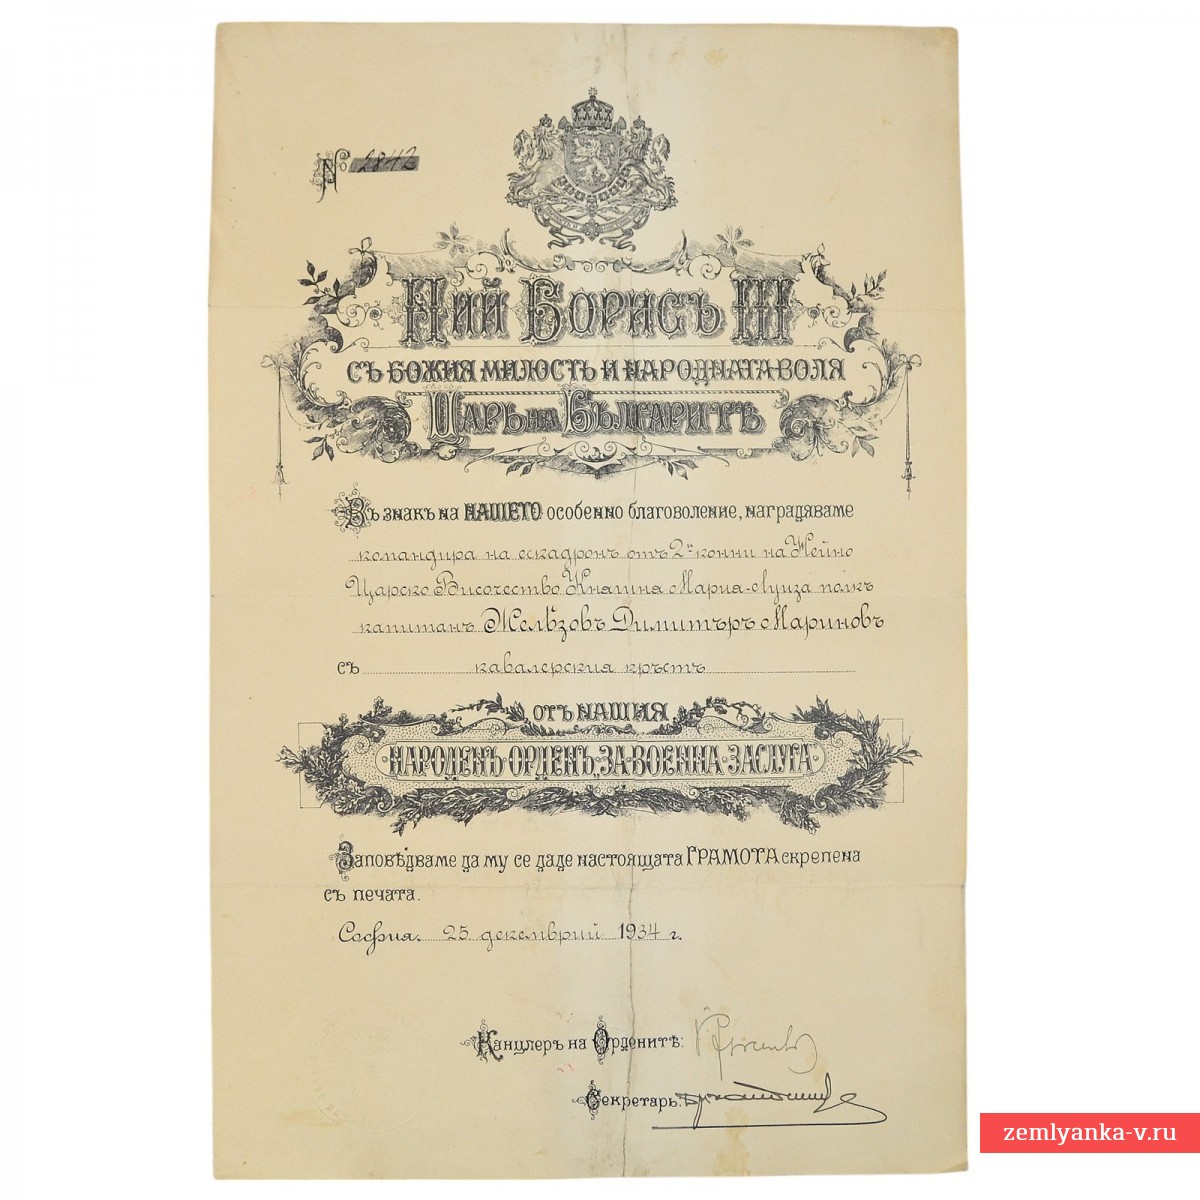 № 2842
НИЙ БОРИСЪ III
СЪ БОЖИЯ МИЛОСТЬ И НАРОДНАТА ВОЛЯ
ЦАРЬ НА БЪЛГАРИТѢ
Въ знакъ на НАШЕТО особенно благоволение, наградяваме
командира на ескадронъ отъ 2й конни на Нейно
Царско Височество Княгиня Мария-Луиза полкъ
капитанъ Желѣзовъ Димитъръ Мариновъ
съ кавалерския кръстъ
ОТЪ НАШИЯ
НАРОДЕНЪ ОРДЕНЪ „ЗА ВОЕННА ЗАСЛУГА“
Заповѣдваме да му се даде настоящата ГРАМОТА скрепена
съ печата.
София, 25 декемврий 1934 г.
Канцлеръ на Орденитѣ:
Секретарь:
zemlyanka-v.ru